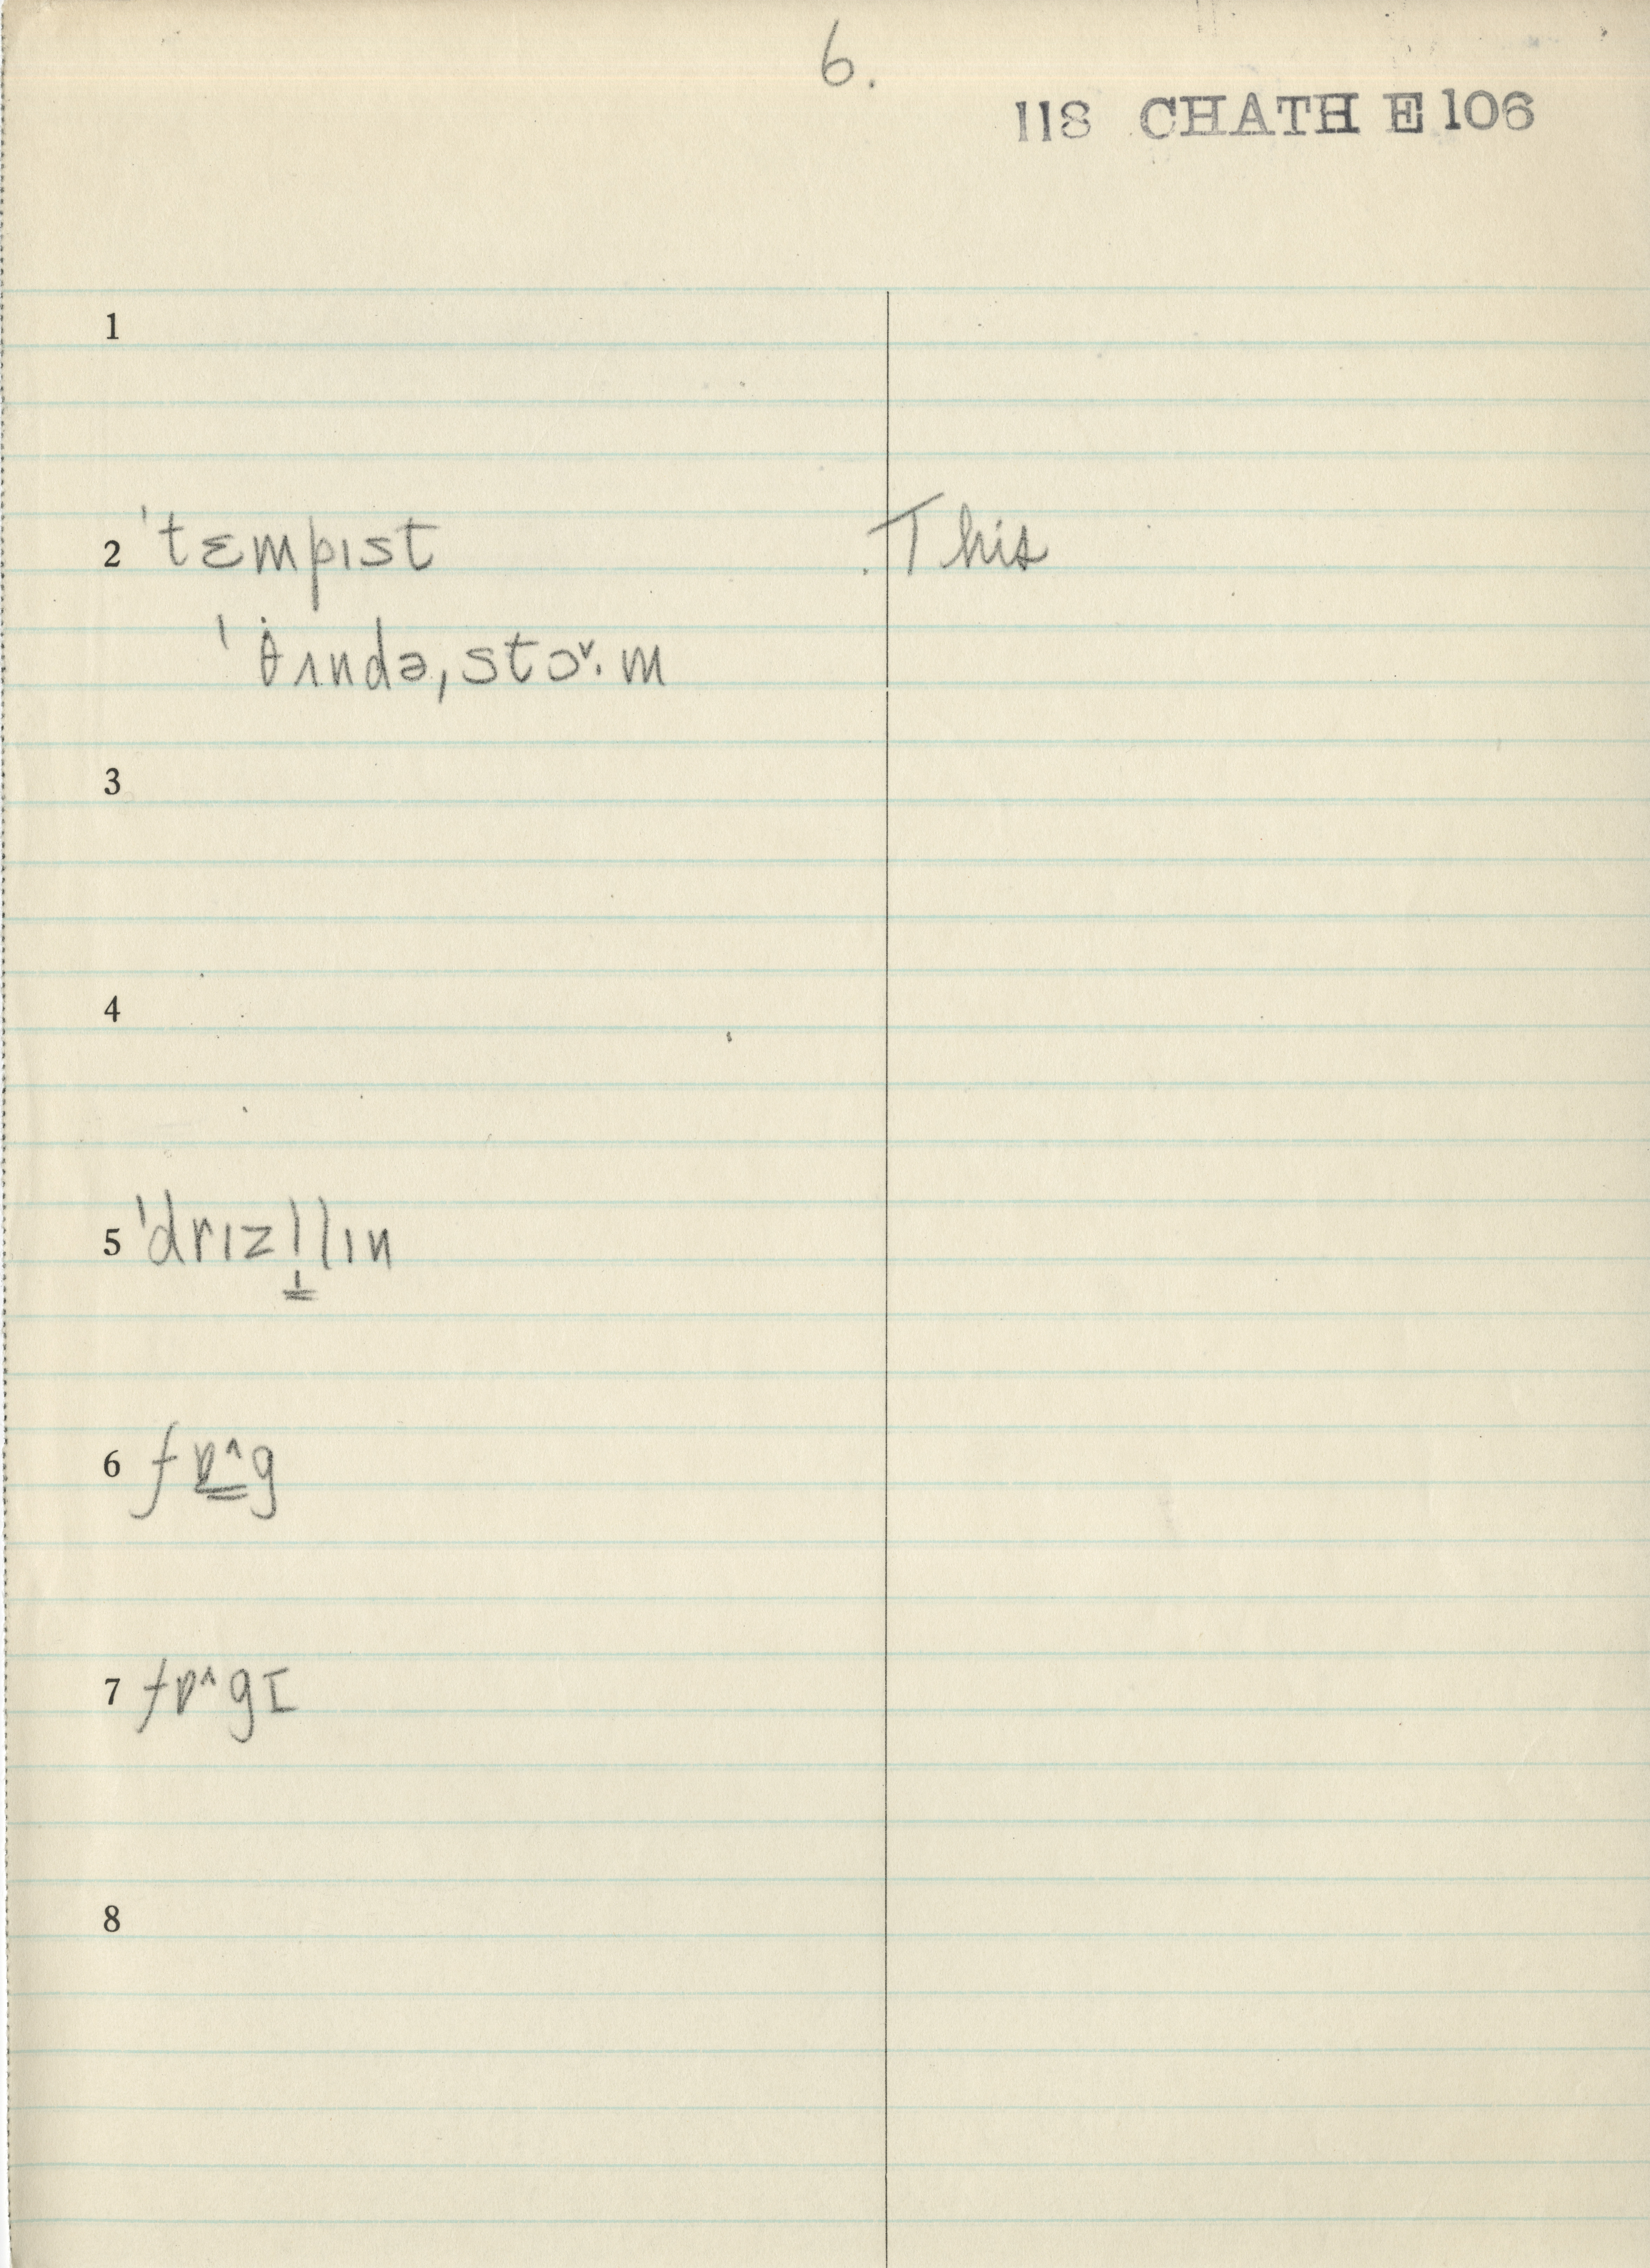 6.
118 CHATH E106
1
2 ˈtɛmpɪst .This
ˈθʌndəˌstɔ˅·m
3
4
5 ˈdrɪzl̩lɪn
6 fɒ^g
7 fɒ^gI
8